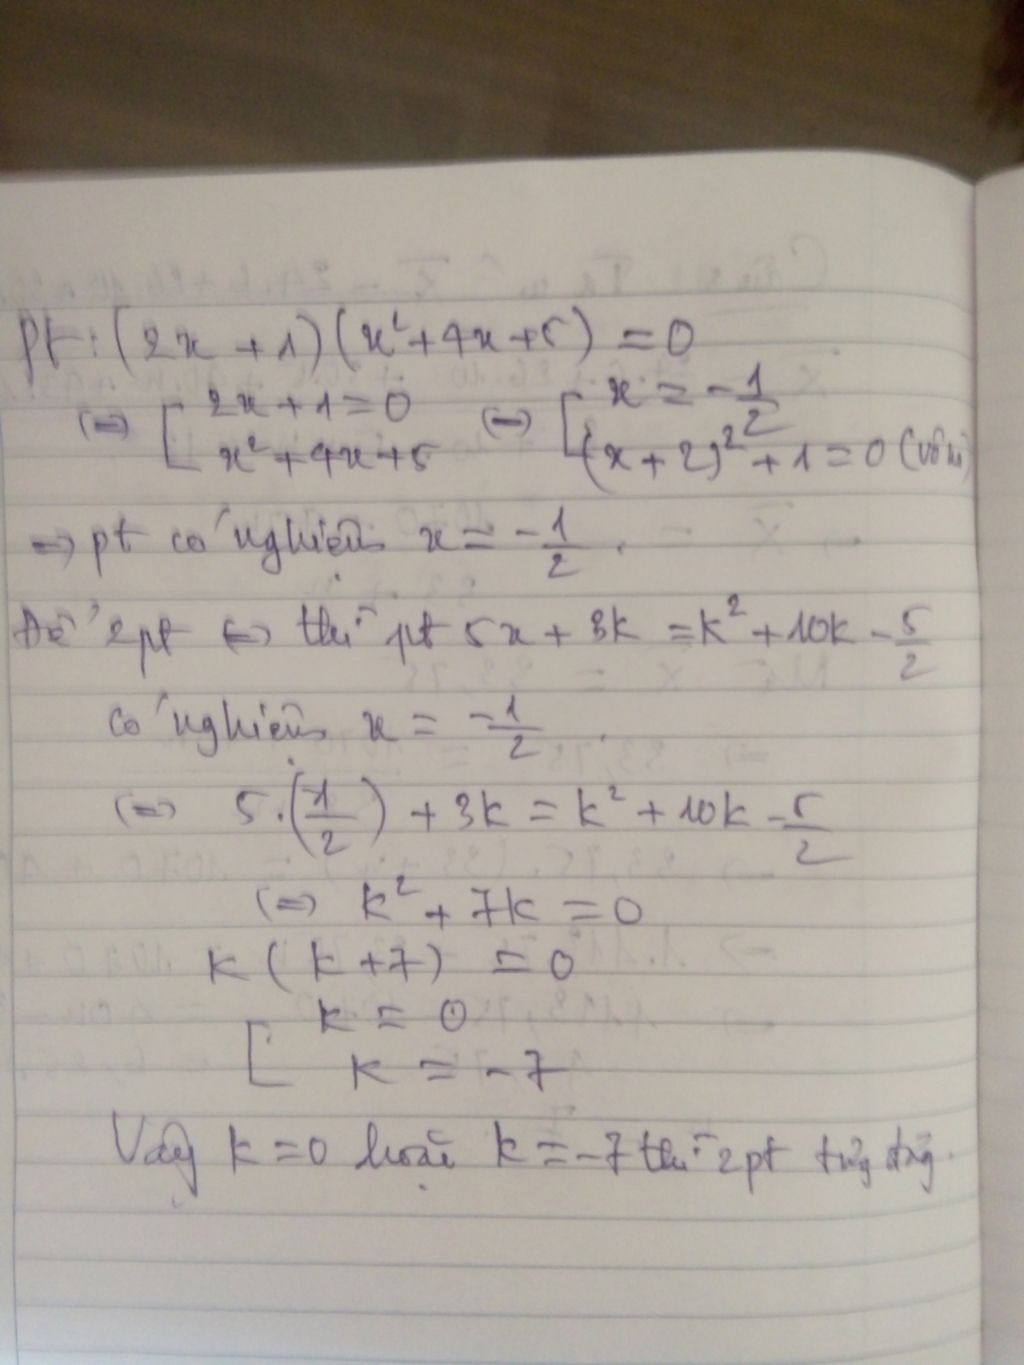 pt: (2x + 1)(x² + 4x + 5) = 0
(=) [ 2x + 1 = 0 (=) [ x = -1/2
x² + 4x + 5 (x + 2)² + 1 = 0 (vô no)
=> pt có nghiệm x = -1/2.
Để 2pt <=> thì pt 5x + 3k = k² + 10k - 5/2
có nghiệm x = -1/2.
(=) 5.(1/2) + 3k = k² + 10k - 5/2
(=) k² + 7k = 0
k(k + 7) = 0
[ k = 0
k = -7
Vậy k = 0 hoặc k = -7 thì 2pt tương đương.